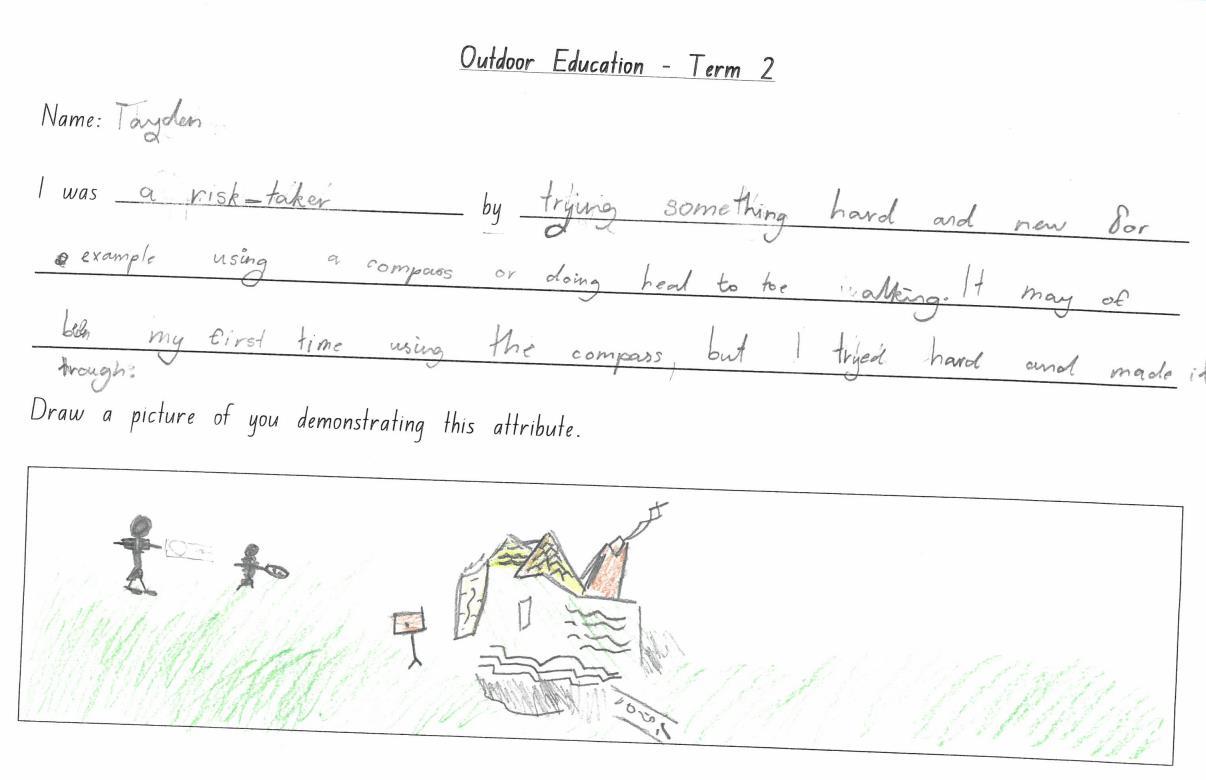 Outdoor Education - Term 2
Name: Tayden
I was a risk-taker by trying something hard and new for
example using a compass or doing heal to toe walking. It may of
my first time using the compass, but I tryed hard and made it
trough.
Draw a picture of you demonstrating this attribute.